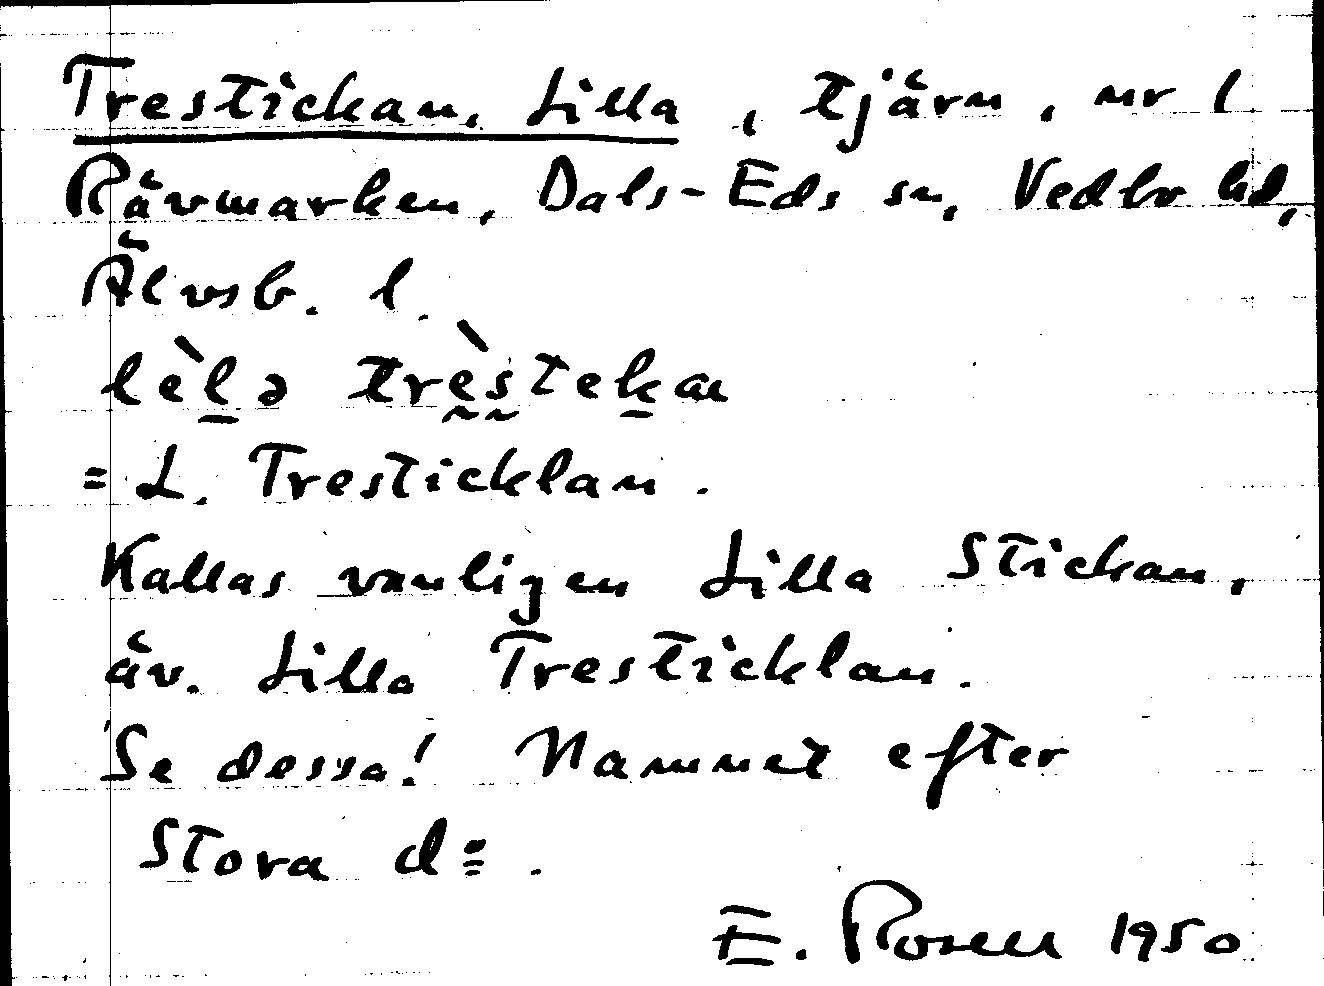 Trestickan, Lilla, tjärn, nr 1
Rävmarken, Dals-Eds sn, Vedbo hd,
Älvsb. l.
lèlə trèstekan
= L. Tresticklan.
Kallas vanligen Lilla Stickan,
äv. Lilla Tresticklan.
Se dessa! Namnet efter
Stora d:o.
E. Rosell 1950